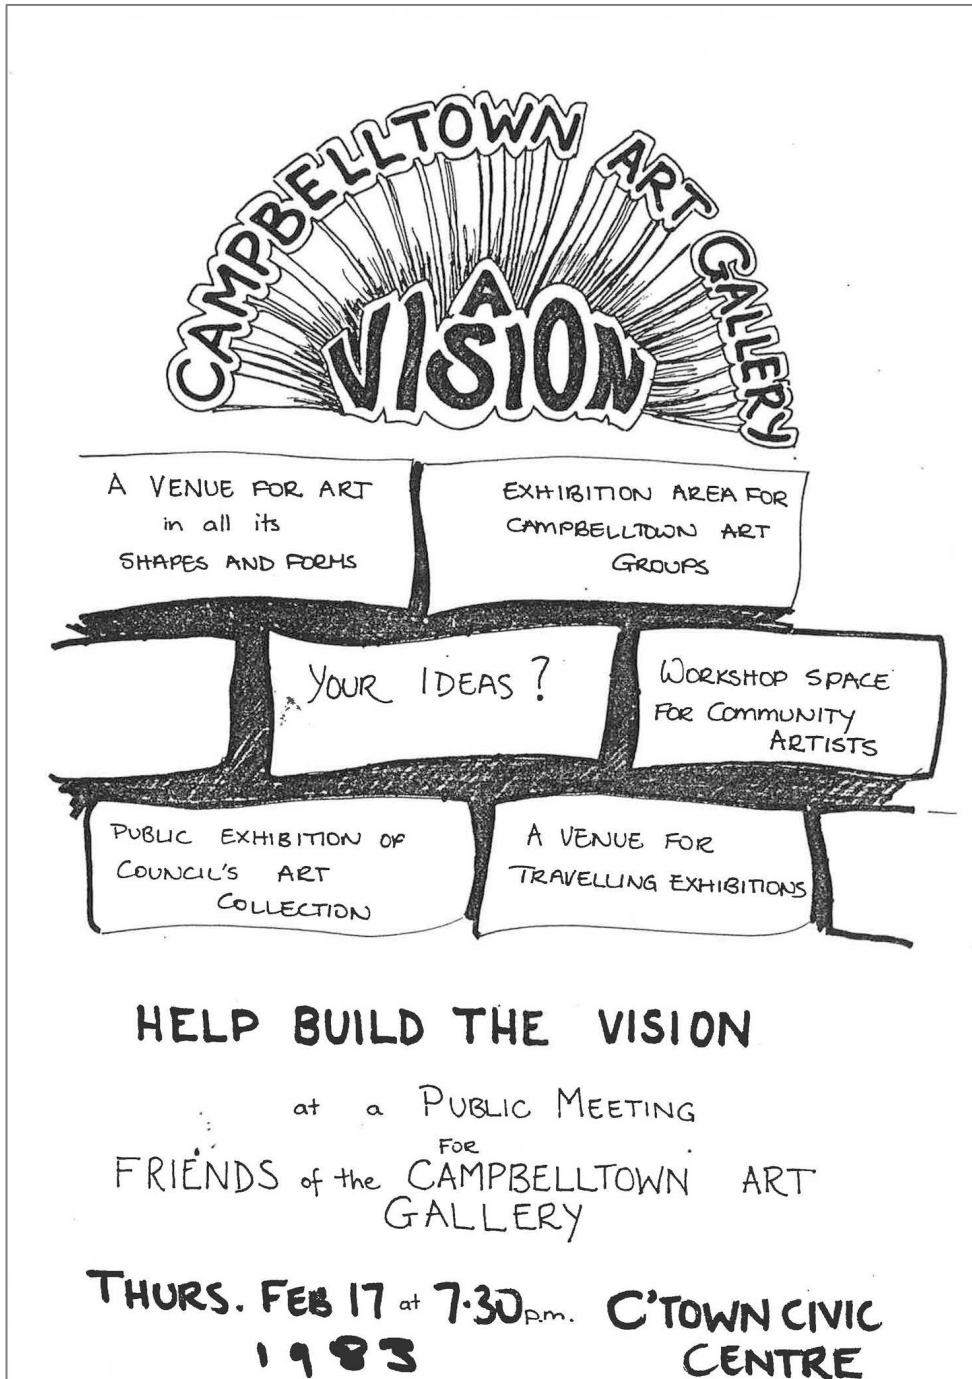 CAMPBELLTOWN ART GALLERY
A
VISION
A VENUE FOR ART
in all its
SHAPES AND FORMS
EXHIBITION AREA FOR
CAMPBELLTOWN ART
GROUPS
YOUR IDEAS?
WORKSHOP SPACE
FOR COMMUNITY
ARTISTS
PUBLIC EXHIBITION OF
COUNCIL'S ART
COLLECTION
A VENUE FOR
TRAVELLING EXHIBITIONS
HELP BUILD THE VISION
at a PUBLIC MEETING
FOR
FRIENDS of the CAMPBELLTOWN ART
GALLERY
THURS. FEB 17 at 7.30p.m. C'TOWN CIVIC
1983 CENTRE